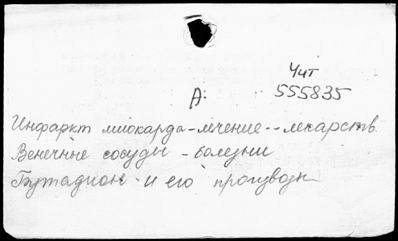 Чит
555835
А:
Инфаркт миокарда - лечение -- лекарств.
Венечные сосуды - болезни
Бутадион и его производн